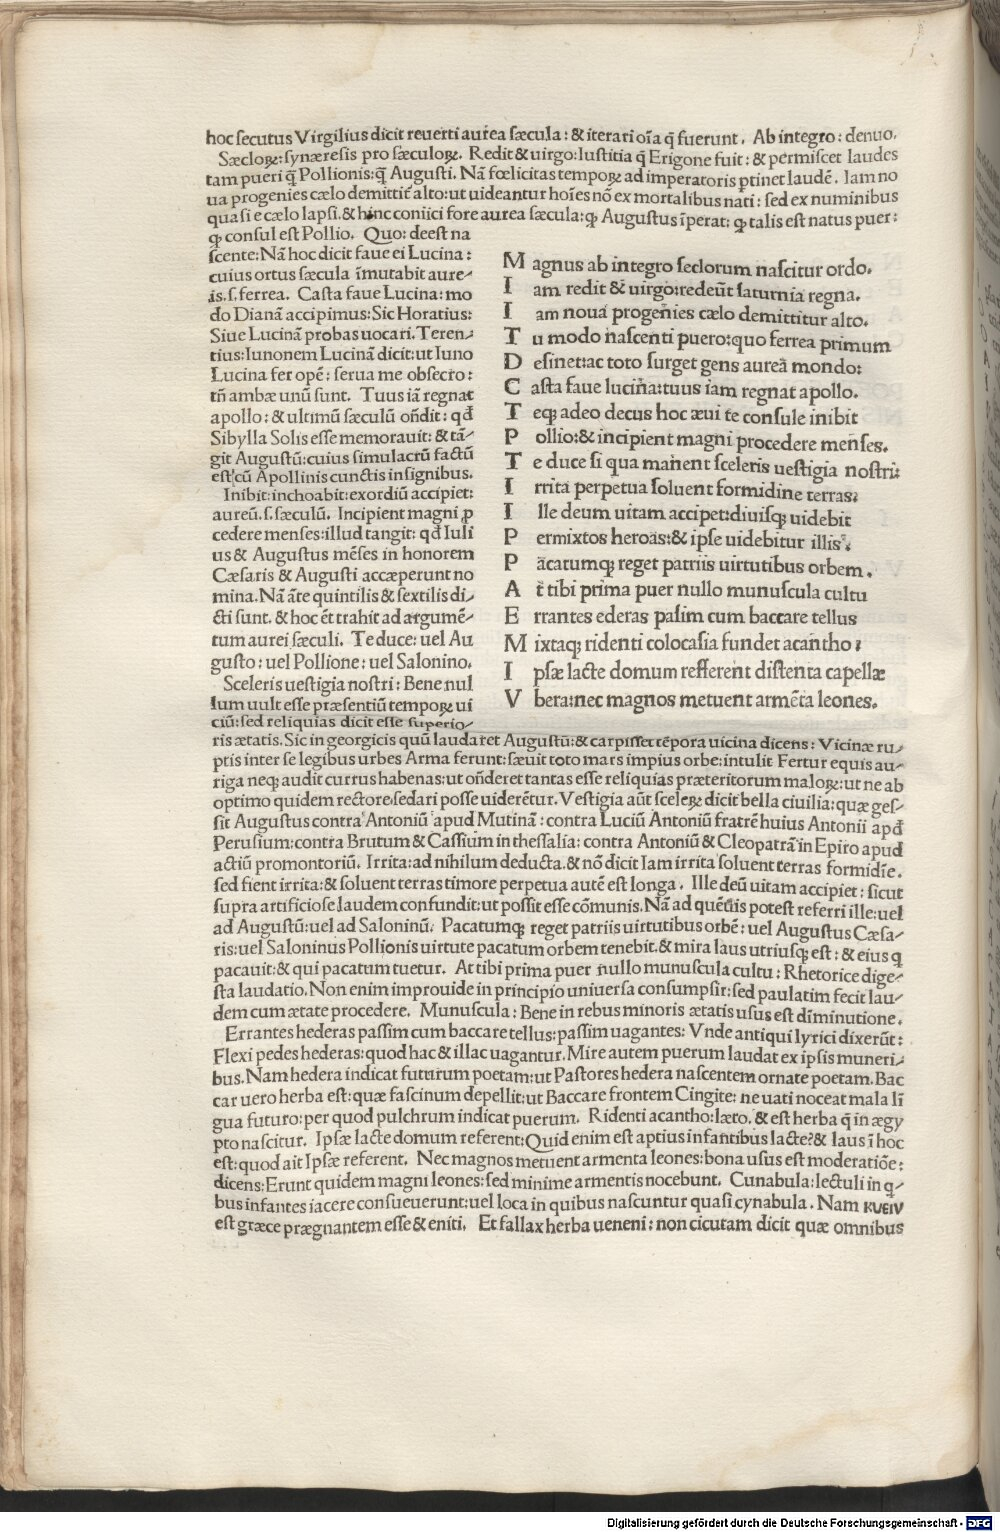 hoc secutus Virgilius dicit reuerti aurea sæcula: & iterari oīa q̄ fuerunt. Ab integro: denuo.
Sæcloꝝ: synæresis pro sæculoꝝ. Redit & uirgo: Iustitia q̄ Erigone fuit: & permiscet laudes
tam pueri q̄ Pollionis: q̄ Augusti. Nā fœlicitas tempoꝝ ad imperatoris ptinet laudē. Iam no
ua progenies cælo demittit̄ alto: ut uideantur hoīes nō ex mortalibus nati: sed ex numinibus
quasi e cælo lapsi. & hinc coniici fore aurea sæcula: ꝙ Augustus īperat: ꝙ talis est natus puer:
ꝙ consul est Pollio. Quo: deest na
scente: Nā hoc dicit faue ei Lucina:
cuius ortus sæcula īmutabit aure-
is. s. ferrea. Casta faue Lucina: mo
do Dianā accipimus: Sic Horatius:
Siue Lucinā probas uocari. Teren-
tius: Iunonem Lucinā dicit: ut Iuno
Lucina fer opē: serua me obsecro:
tn̄ ambæ unū sunt. Tuus iā regnat
apollo: & ultimū sæculū on̄dit: qd̄
Sibylla Solis esse memorauit: & tā-
git Augustū: cuius simulacrū factū
est cū Apollinis cunctis insignibus.
Inibit: inchoabit: exordiū accipiet:
aureū. s. sæculū. Incipient magni ꝓ
cedere menses: illud tangit: qd̄ Iuli
us & Augustus mēses in honorem
Cæsaris & Augusti accæperunt no
mina. Nā āte quintilis & sextilis di-
cti sunt. & hoc ēt trahit ad argumē-
tum aurei sæculi. Te duce: uel Au
gusto: uel Pollione: uel Salonino.
Sceleris uestigia nostri: Bene nul
lum uult esse præsentiū tempoꝝ ui
ciū: sed reliquias dicit esse superio-
Magnus ab integro seclorum nascitur ordo.
Iam redit & uirgo: redeūt saturnia regna.
Iam noua progenies cælo demittitur alto.
Tu modo nascenti puero: quo ferrea primum
Desinet: ac toto surget gens aurea mondo:
Casta faue lucina: tuus iam regnat apollo.
Teqꝫ adeo decus hoc æui te consule inibit
Pollio: & incipient magni procedere menses.
Te duce si qua manent sceleris uestigia nostri:
Irrita perpetua soluent formidine terras:
Ille deum uitam accipet: diuisqꝫ uidebit
Permixtos heroas: & ipse uidebitur illis:
Pacatumqꝫ reget patriis uirtutibus orbem.
At tibi prima puer nullo munuscula cultu
Errantes ederas pasim cum baccare tellus
Mixtaqꝫ ridenti colocasia fundet acantho:
Ipsæ lacte domum refferent distenta capellæ
Vbera: nec magnos metuent armēta leones.
ris ætatis. Sic in georgicis quū laudaret Augustū: & carpisset tēpora uicina dicens: Vicinæ ru-
ptis inter se legibus urbes Arma ferunt: sæuit toto mars impius orbe: intulit Fertur equis au-
riga neqꝫ audit currus habenas: ut on̄deret tantas esse reliquias præteritorum maloꝝ: ut ne ab
optimo quidem rectore sedari posse uiderētur. Vestigia aūt sceleꝝ dicit bella ciuilia: quæ ges-
sit Augustus contra Antoniū apud Mutinā: contra Luciū Antoniū fratrē huius Antonii apd̄
Perusium: contra Brutum & Cassium in thessalia: contra Antoniū & Cleopatrā in Epiro apud
actiū promontoriū. Irrita: ad nihilum deducta. & nō dicit Iam irrita soluent terras formidīe.
sed fient irrita: & soluent terras timore perpetua autē est longa. Ille deū uitam accipiet: sicut
supra artificiose laudem confundit: ut possit esse cōmunis. Nā ad quēuis potest referri ille: uel
ad Augustū: uel ad Saloninū. Pacatumqꝫ reget patriis uirtutibus orbē: uel Augustus Cæsa-
ris: uel Saloninus Pollionis uirtute pacatum orbem tenebit. & mira laus utriusqꝫ est: & eius q
pacauit: & qui pacatum tuetur. At tibi prima puer nullo munuscula cultu: Rhetorice dige-
sta laudatio. Non enim improuide in principio uniuersa consumpsit: sed paulatim fecit lau-
dem cum ætate procedere. Munuscula: Bene in rebus minoris ætatis usus est dīminutione.
Errantes hederas passim cum baccare tellus: passim uagantes: Vnde antiqui lyrici dixerūt:
Flexi pedes hederas: quod hac & illac uagantur. Mire autem puerum laudat ex ipsis muneri-
bus. Nam hedera indicat futurum poetam: ut Pastores hedera nascentem ornate poetam. Bac
car uero herba est: quæ fascinum depellit: ut Baccare frontem Cingite: ne uati noceat mala lī
gua futuro: per quod pulchrum indicat puerum. Ridenti acantho: læto. & est herba q̄ in ægy
pto nascitur. Ipsæ lacte domum referent: Quid enim est aptius infantibus lacte? & laus ī hoc
est: quod ait Ipsæ referent. Nec magnos metuent armenta leones: bona usus est moderatiōe:
dicens: Erunt quidem magni leones: sed minime armentis nocebunt. Cunabula: lectuli in q-
bus infantes iacere consueuerunt: uel loca in quibus nascuntur quasi cynabula. Nam κυειν
est græce prægnantem esse & eniti. Et fallax herba ueneni: non cicutam dicit quæ omnibus
Digitalisierung gefördert durch die Deutsche Forschungsgemeinschaft - DFG